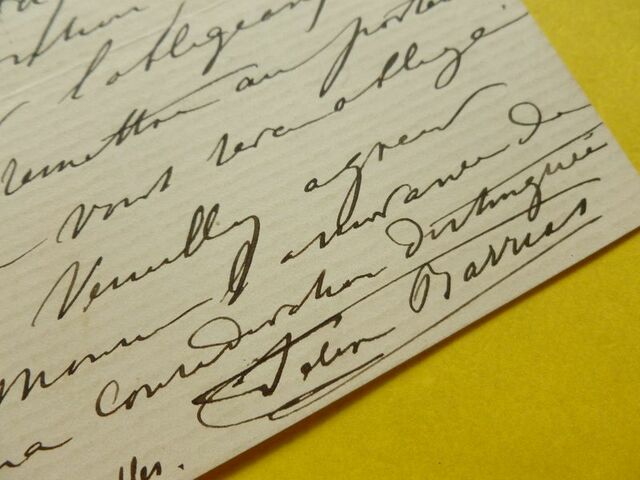 l'obligeance
remettre au porteur
vous serai obligé.
Veuillez agréer
Monsieur l'assurance de
ma considération distinguée
Félix Barrias